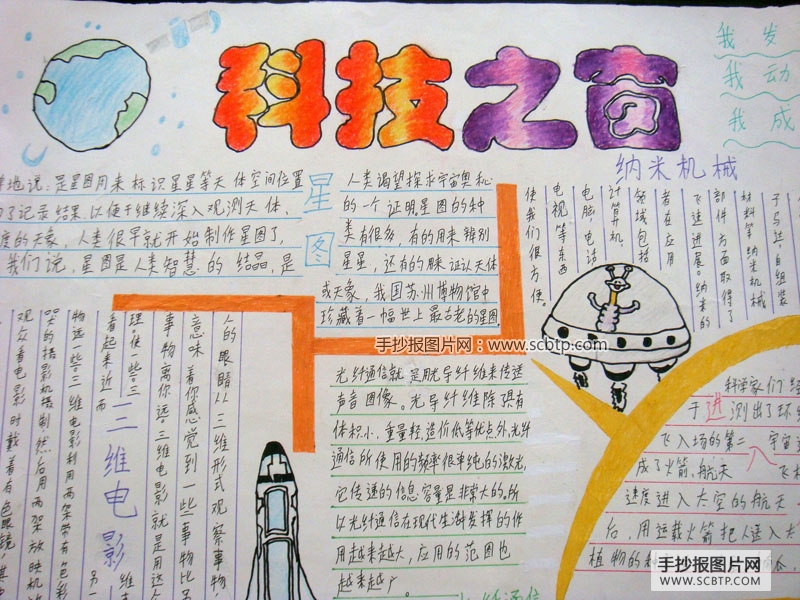 科技之窗
我发
我动
我成
地说:是星图用来标识星星等天体空间位置
了记录结果,以便于继续深入观测天体、
度的天象,人类很早就开始制作星图了,
我们说,星图是人类智慧的结晶,是
星图
人类渴望探求宇宙奥秘
的一个证明。星图的种
类有很多,有的用来辨别
星星,还有的用来证认天体
或天象,我国苏州博物馆中
珍藏着一幅世上最古老的星图
纳米机械
材料等纳米机械
部件方面取得了
飞速进展。纳米的
者在应用
领域包括
计算机、
电脑、电话
电视等东西
使我们很方便。
人的眼睛从三维形式观察事物
意味着你感觉到一些事物比另
事物离你远。三维电影就是用这个
理,使一些三
看起来近而
三维电影
物远一些。三维电影利用两架带有色彩
的摄影机摄制,然后用两架放映机
观众看电影时戴着有色眼镜,其中
光纤通信就是用光导纤维来传送
声音图像。光导纤维除具有
体积小、重量轻、造价低等优点外,光纤
通信所使用的频率很单纯的激光,
它传递的信息容量是非常大的,所
以光纤通信在现代生活发挥的作
用越来越大,应用的范围也
越来越广。
光纤通信
科学家们经
于进测出了环
飞入场的第二宇宙
成了火箭、航天飞
速度进入太空的航天
后,用运载火箭把人送入太
植物的种
手抄报图片网:www.scbtp.com
手抄报图片网
WWW.SCBTP.COM